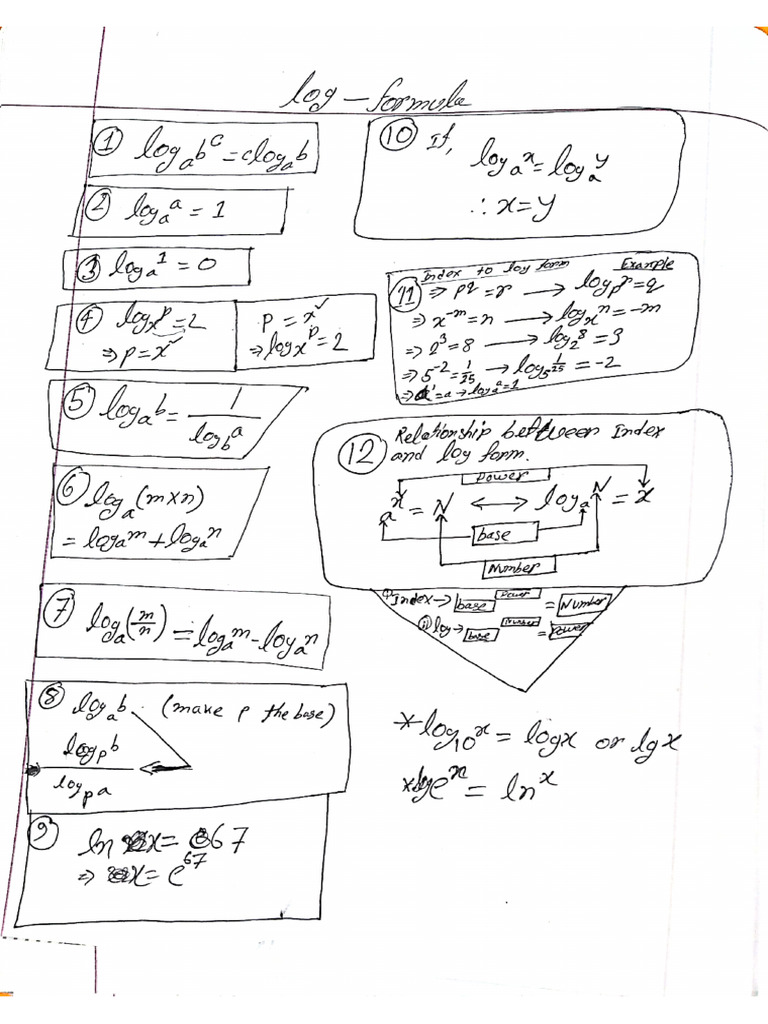 log – formula
① logₐb^c = clogₐb
② logₐa = 1
③ logₐ1 = 0
④ logₓp = 2
⇒ p = x²
p = x²
⇒ logₓp = 2
⑤ logₐb = 1/log_b a
⑥ logₐ(m×n)
= logₐm + logₐn
⑦ logₐ(m/n) = logₐm – logₐn
⑧ logₐb (make p the base)
log_p b / log_p a
⑨ ln x = 67
⇒ x = e^67
⑩ If,
logₐx = logₐy
∴ x = y
⑪ Index to log form Example
⇒ p^q = r → log_p r = q
⇒ x^-m = n → logₓn = -m
⇒ 2³ = 8 → log₂8 = 3
⇒ 5^-2 = 1/25 → log₅ 1/25 = -2
⇒ a¹ = a → logₐa = 1
⑫ Relationship between Index
and log form.
Power
a^x = N ↔ logₐN = x
base
Number
i) Index → base Power = Number
ii) log → base Number = Power
*log₁₀x = logx or lgx
*logₑx = ln x